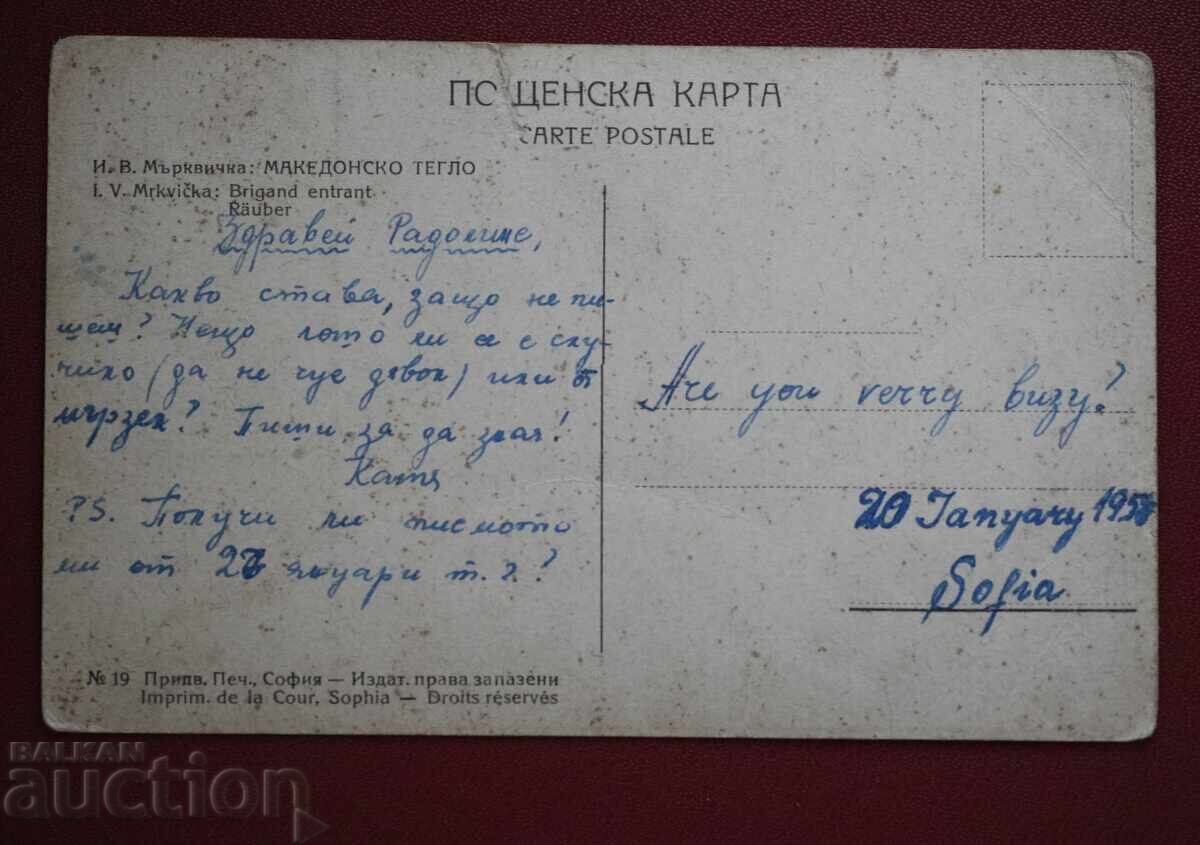 ПО ЩЕНСКА КАРТА
CARTE POSTALE
И. В. Мърквичка: МАКЕДОНСКО ТЕГЛО
I. V. Mrkvička: Brigand entrant
Räuber
Здравей Радолине,
Какво става, защо не пи-
шеш? Нещо лото ли се е слу-
чило (да не чуе дявол) или
мързел? Пиши за да зная!
Катя
P.S. Получи ли писмото
ми от януари т.г.?
Are you verry buzy?
20 January 195
Sofia
№ 19 Придв. Печ., София — Издат. права запазени
Imprim. de la Cour, Sophia — Droits réservés
BALKAN
auction